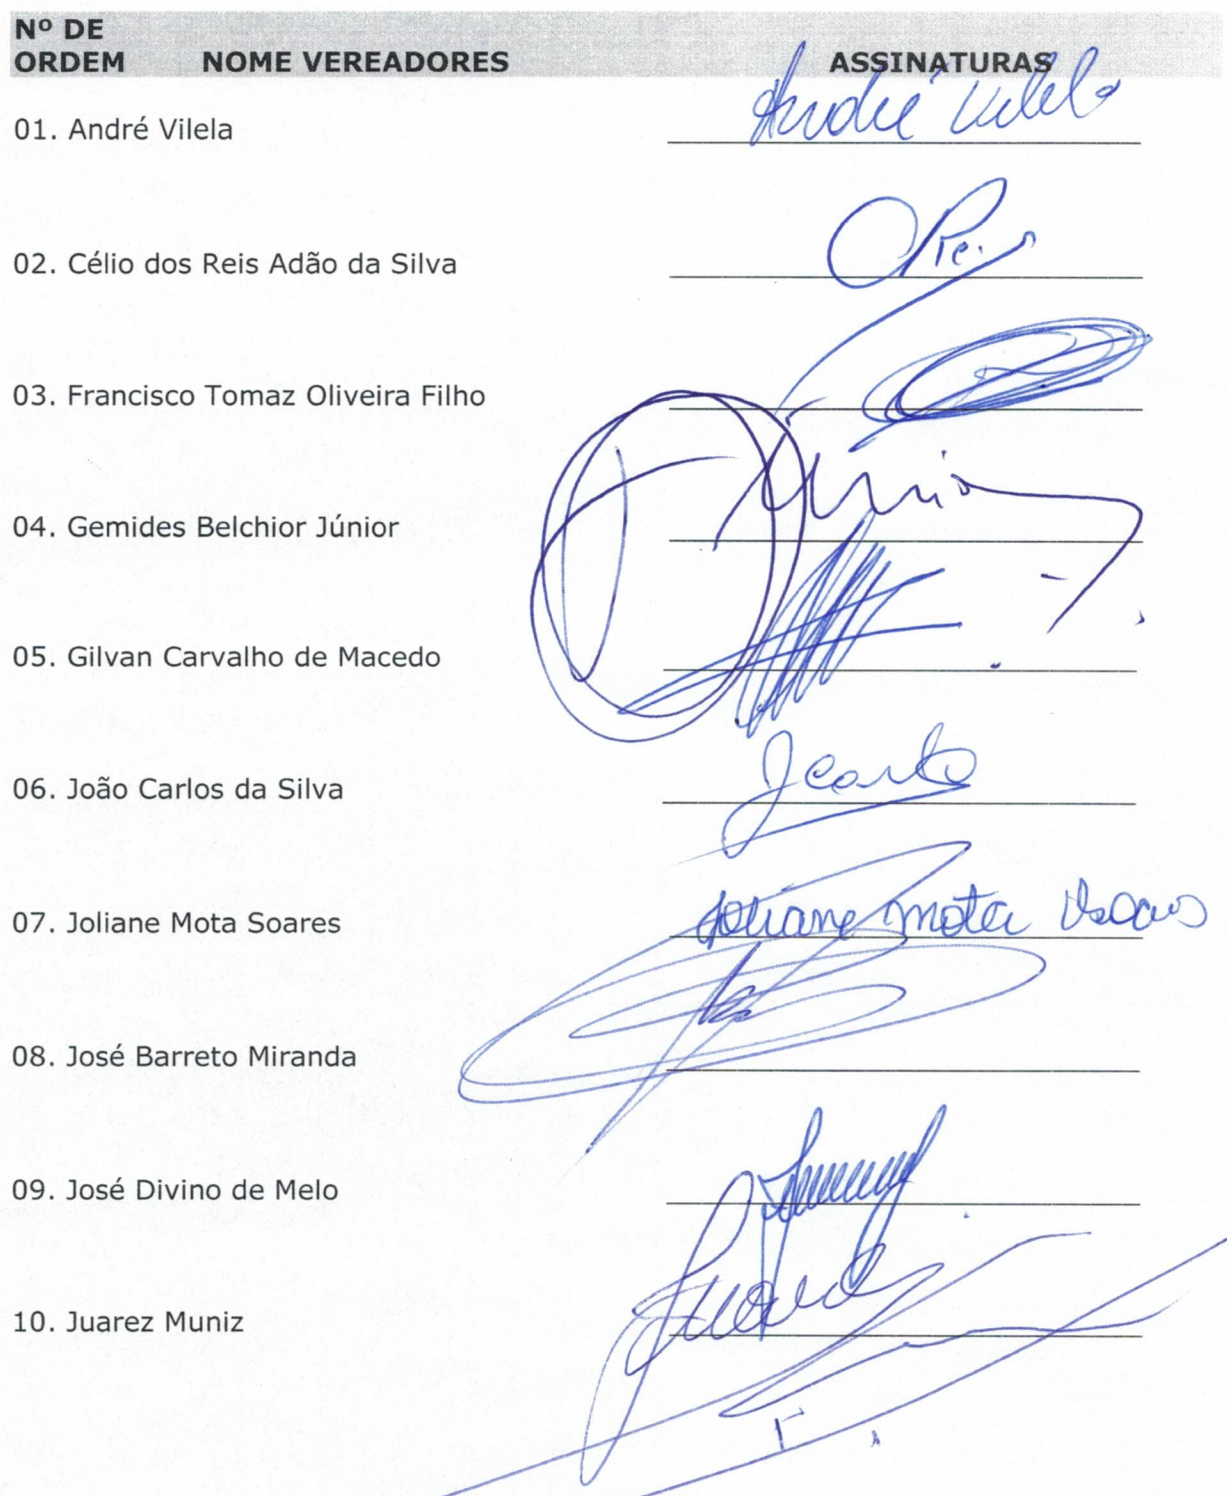 Nº DE
ORDEM NOME VEREADORES ASSINATURAS
01. André Vilela André Vilela
02. Célio dos Reis Adão da Silva CReis
03. Francisco Tomaz Oliveira Filho
04. Gemides Belchior Júnior Júnior
05. Gilvan Carvalho de Macedo
06. João Carlos da Silva
07. Joliane Mota Soares Joliane Mota
08. José Barreto Miranda
09. José Divino de Melo
10. Juarez Muniz